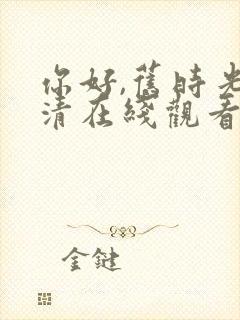 你好,舊時光
清在綫觀看
金鍵